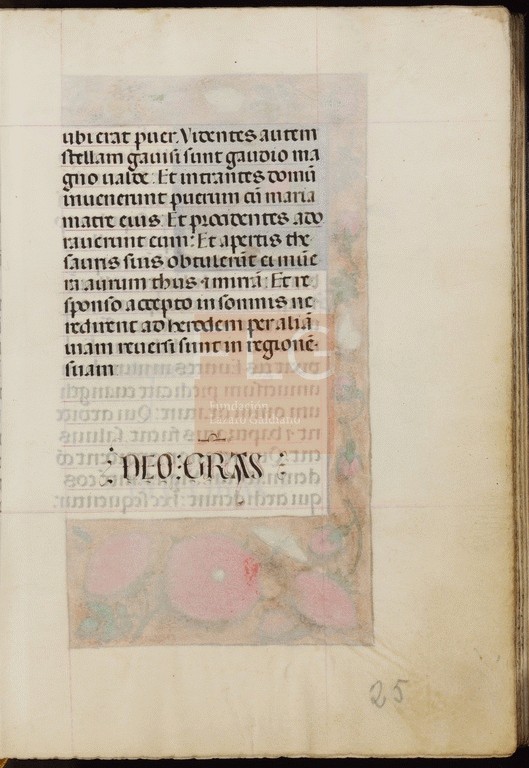 ubi erat puer. Videntes autem
stellam gauisi sunt gaudio ma
gno ualde: Et intrantes domū
inuenerunt puerum cū maria
matre eius. Et procidentes ado
rauerunt eum: Et apertis the
sauris suis obtulerūt ei mūe
ra aurum thus ⁊ mirrā: Et re
sponso accepto in somnis ne
redirent ad herodem per aliā
uiam reuersi sunt in regionē
suam
R
: DEO: GRAS :
Fundación
Lázaro Galdiano
FLG
25